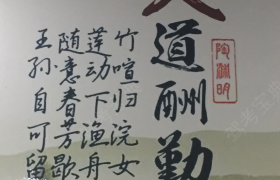 道酬勤
陶渊明
竹喧归浣女
莲动下渔舟
随意春芳歇
王孙自可留